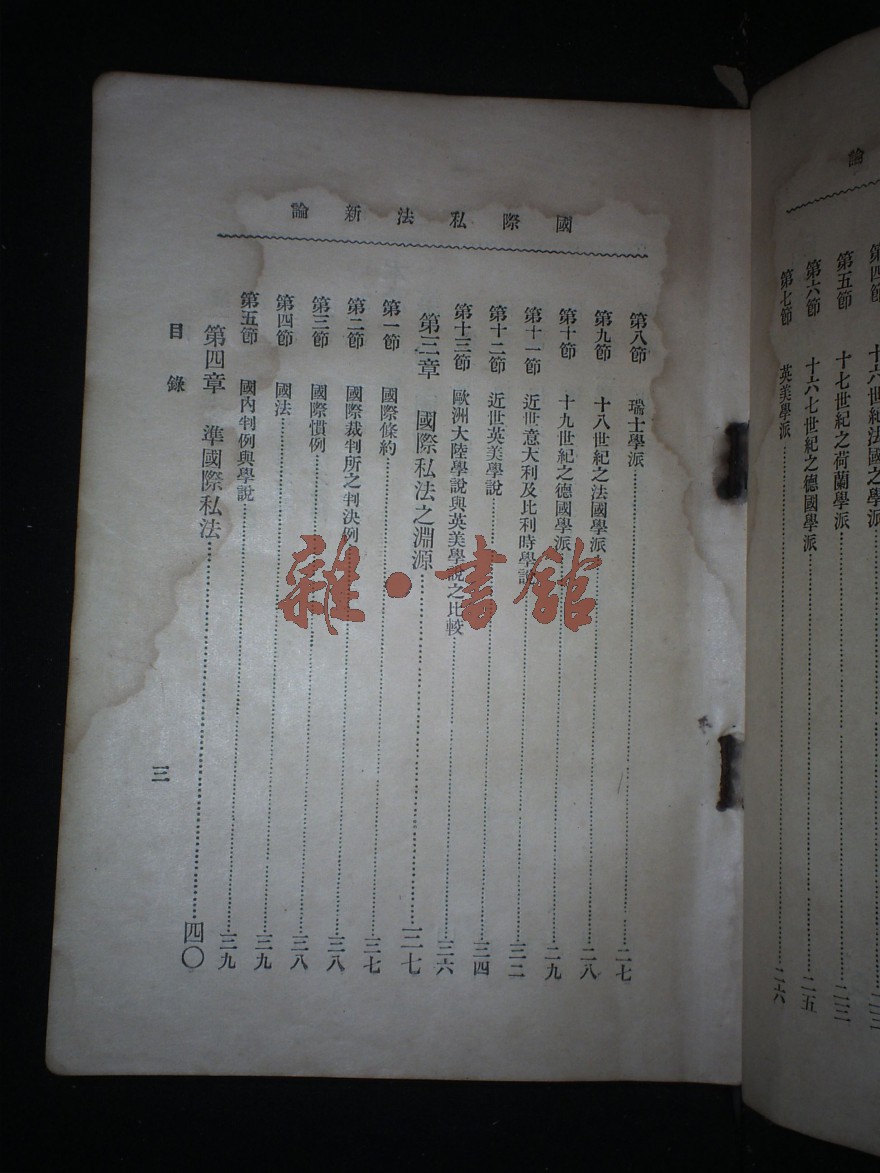 論
第四節 十六世紀法國之學派
第五節 十七世紀之荷蘭學派 二三
第六節 十六七世紀之德國學派 二五
第七節 英美學派 二六
國際私法新論
第八節 瑞士學派 二七
第九節 十八世紀之法國學派 二八
第十節 十九世紀之德國學派 二九
第十一節 近世意大利及比利時學說 三二
第十二節 近世英美學說 三四
第十三節 歐洲大陸學說與英美學說之比較 三六
第三章 國際私法之淵源 三七
第一節 國際條約 三七
第二節 國際裁判所之判決例 三八
第三節 國際慣例 三八
第四節 國法 三九
第五節 國內判例與學說 三九
第四章 準國際私法 四〇
目錄
三
雜·書館